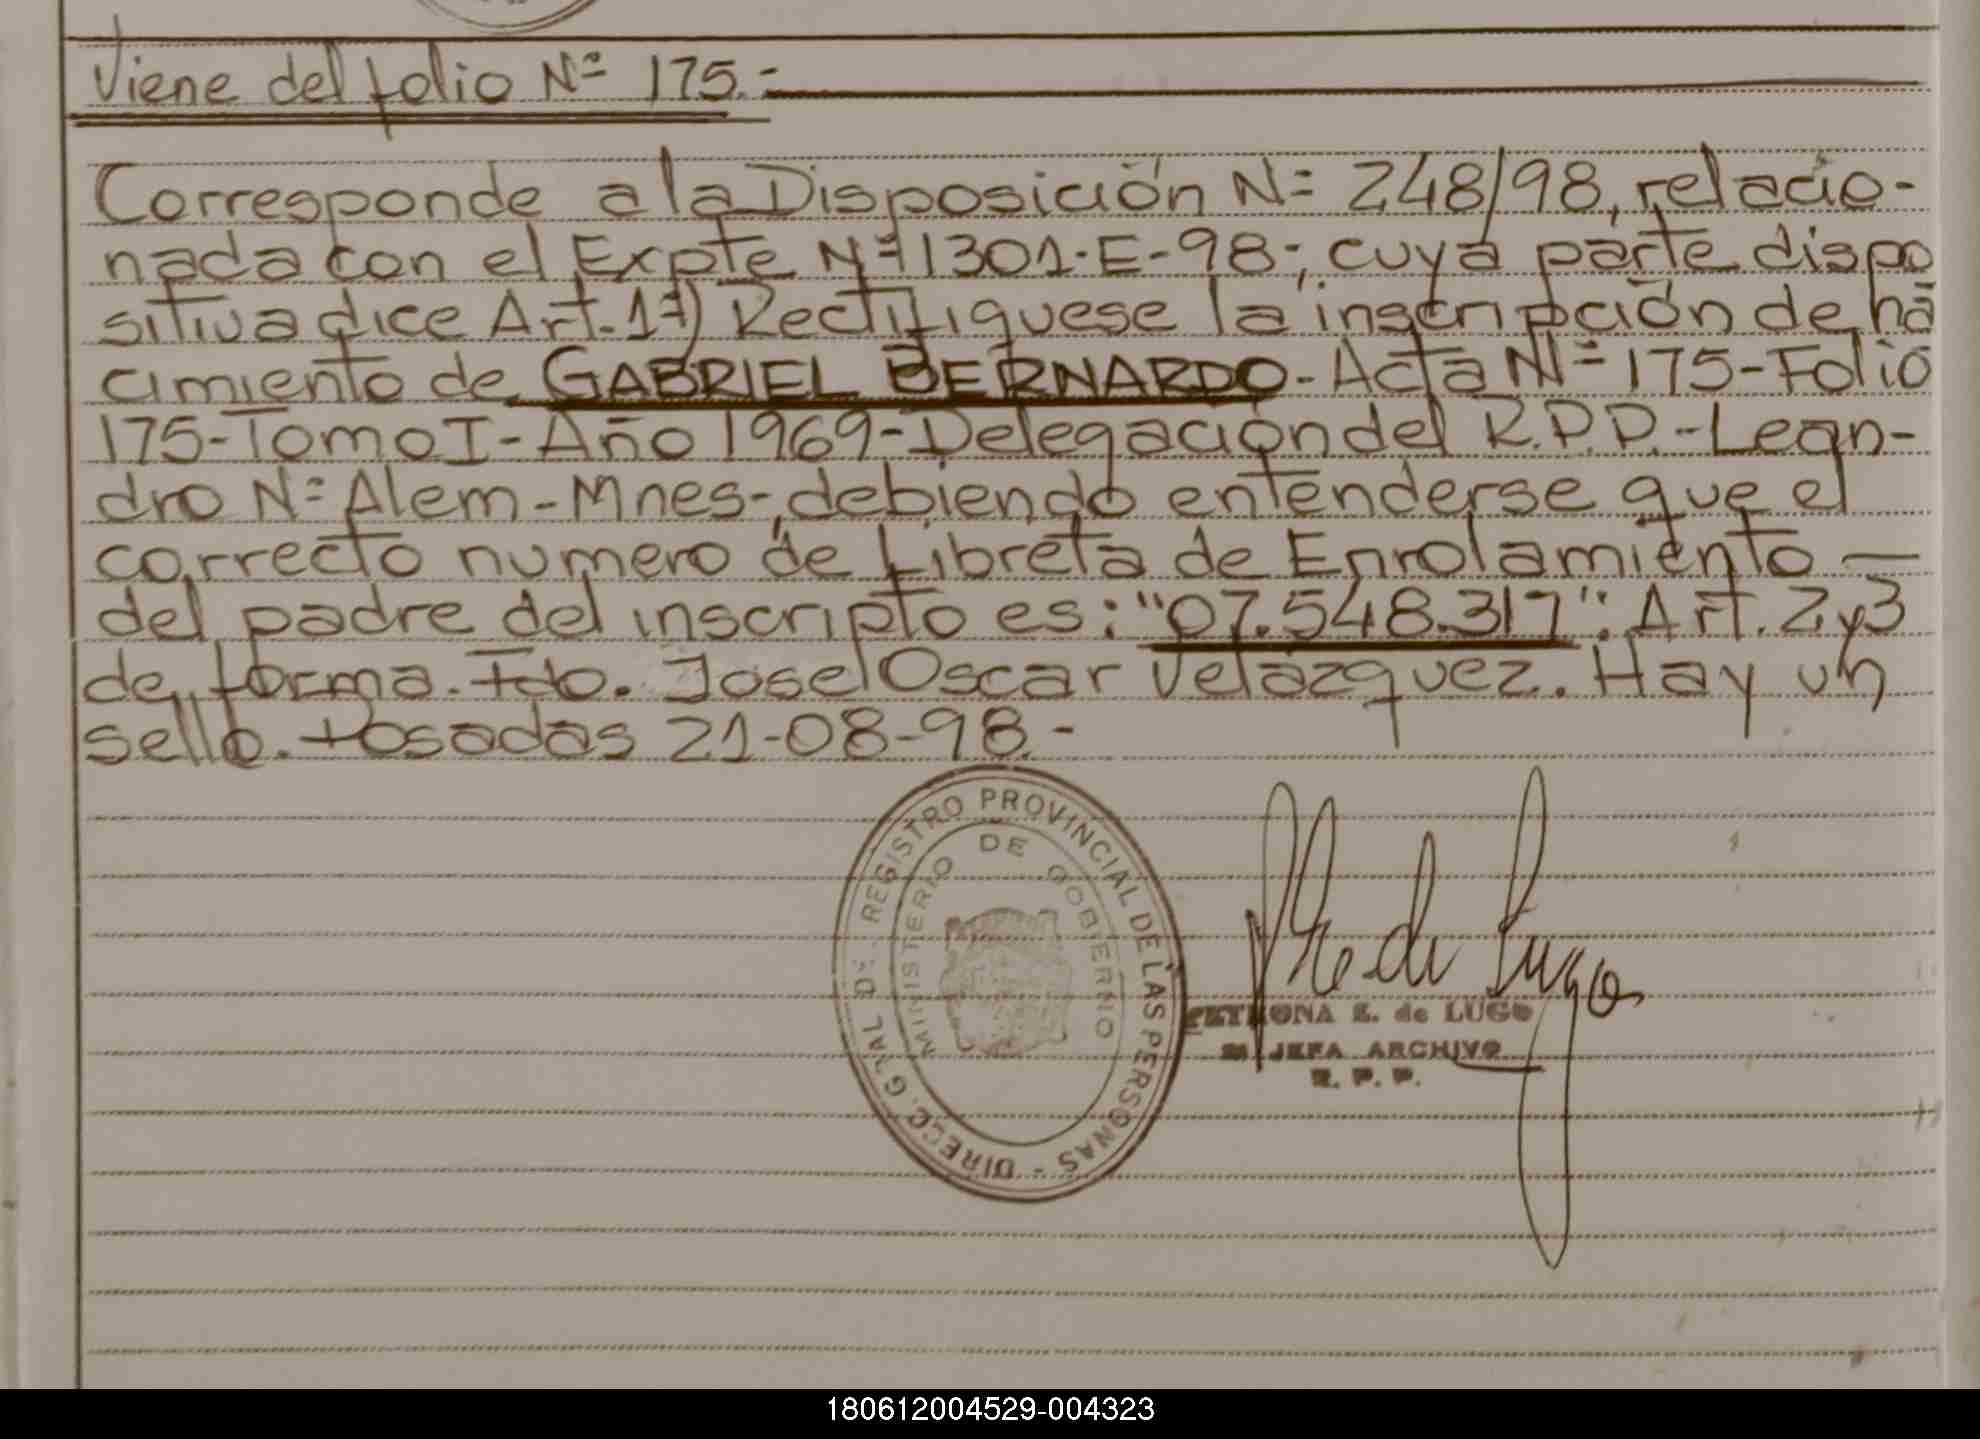 Viene del folio Nº 175.-
Corresponde a la Disposición Nº 248/98, relacio-
nada con el Expte Nº 1301-E-98-; cuya parte dispo
sitiva dice Art. 1º) Rectifiquese la inscripción de na
cimiento de GABRIEL BERNARDO - Acta Nº 175 - Folio
175 - Tomo I - Año 1969 - Delegación del R.P.P. - Lean-
dro N= Alem - Mnes-, debiendo entenderse que el
correcto numero de Libreta de Enrolamiento —
del padre del inscripto es: "07.548.317". Art. 2 y 3
de forma. Fdo. Jose Oscar Velazquez. Hay un
sello. Posadas 21-08-98.-
DIRECC. GRAL DE REGISTRO PROVINCIAL DE LAS PERSONAS -
MINISTERIO DE GOBIERNO
de Lugo
PETRONA E. de LUGO
JEFA ARCHIVO
R. P. P.
180612004529-004323